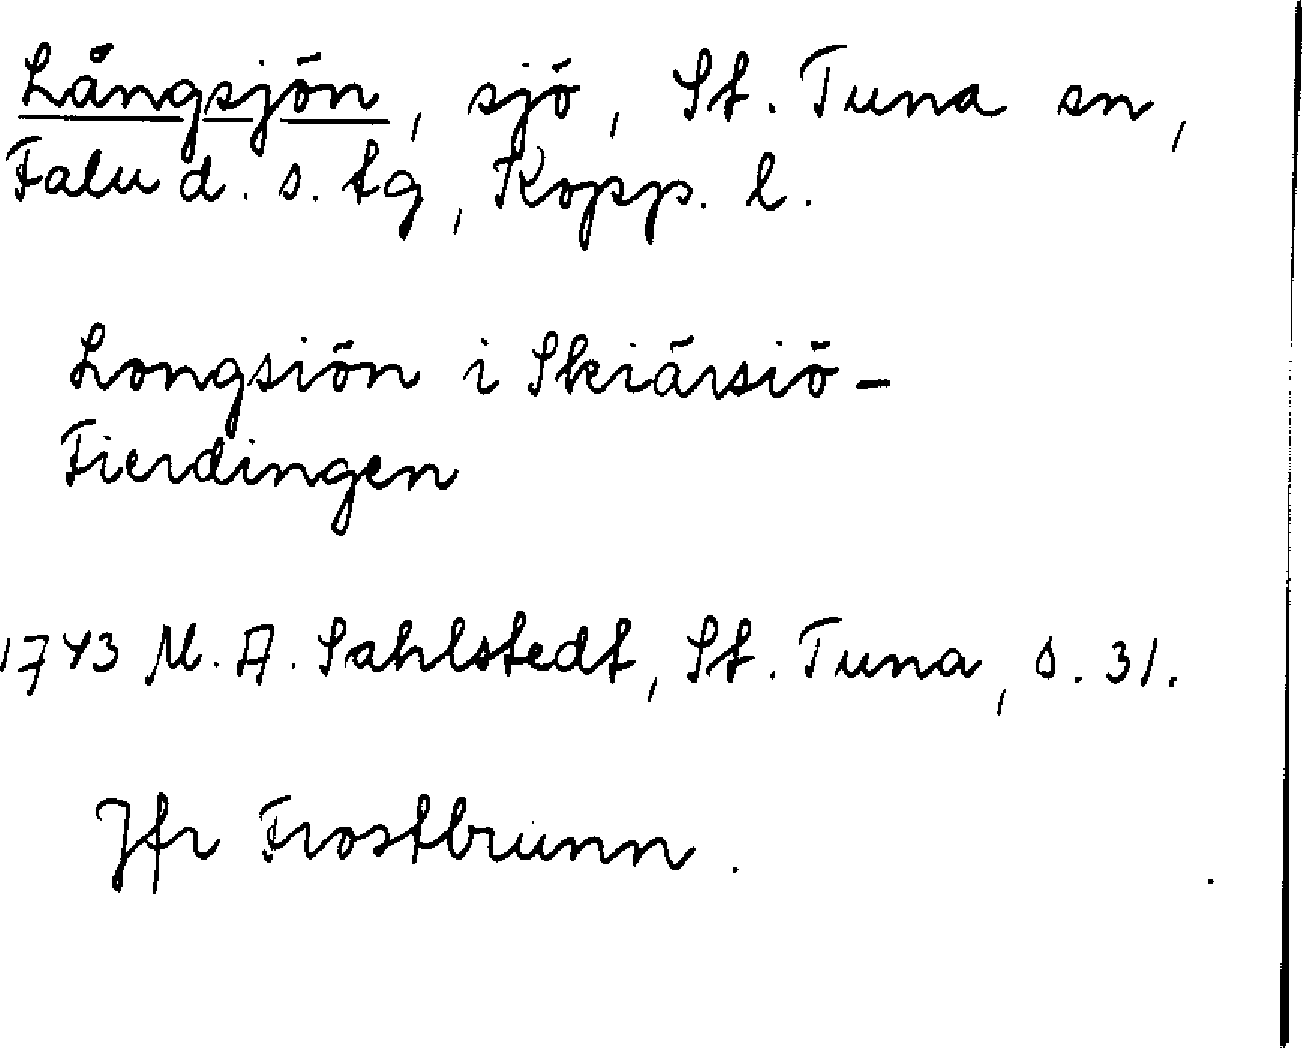 Långsjön, sjö, St. Tuna sn,
Falu d. s. tg, Kopp. l.
Longsiön i Skiärsiö-
Fierdingen
1743 M. A. Sahlstedt, St. Tuna, s. 31.
Jfr Frostbrunn.